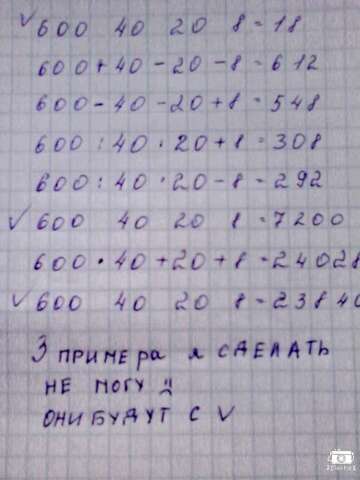 ✓ 600 40 20 8 = 18
600 + 40 - 20 - 8 = 612
600 - 40 - 20 + 8 = 548
600 : 40 · 20 + 8 = 308
600 : 40 · 20 - 8 = 292
✓ 600 40 20 8 = 7200
600 · 40 + 20 + 8 = 24028
✓ 600 40 20 8 = 23840
3 ПРИМЕРА Я СДЕЛАТЬ
НЕ МОГУ :(
ОНИ БУДУТ С ✓